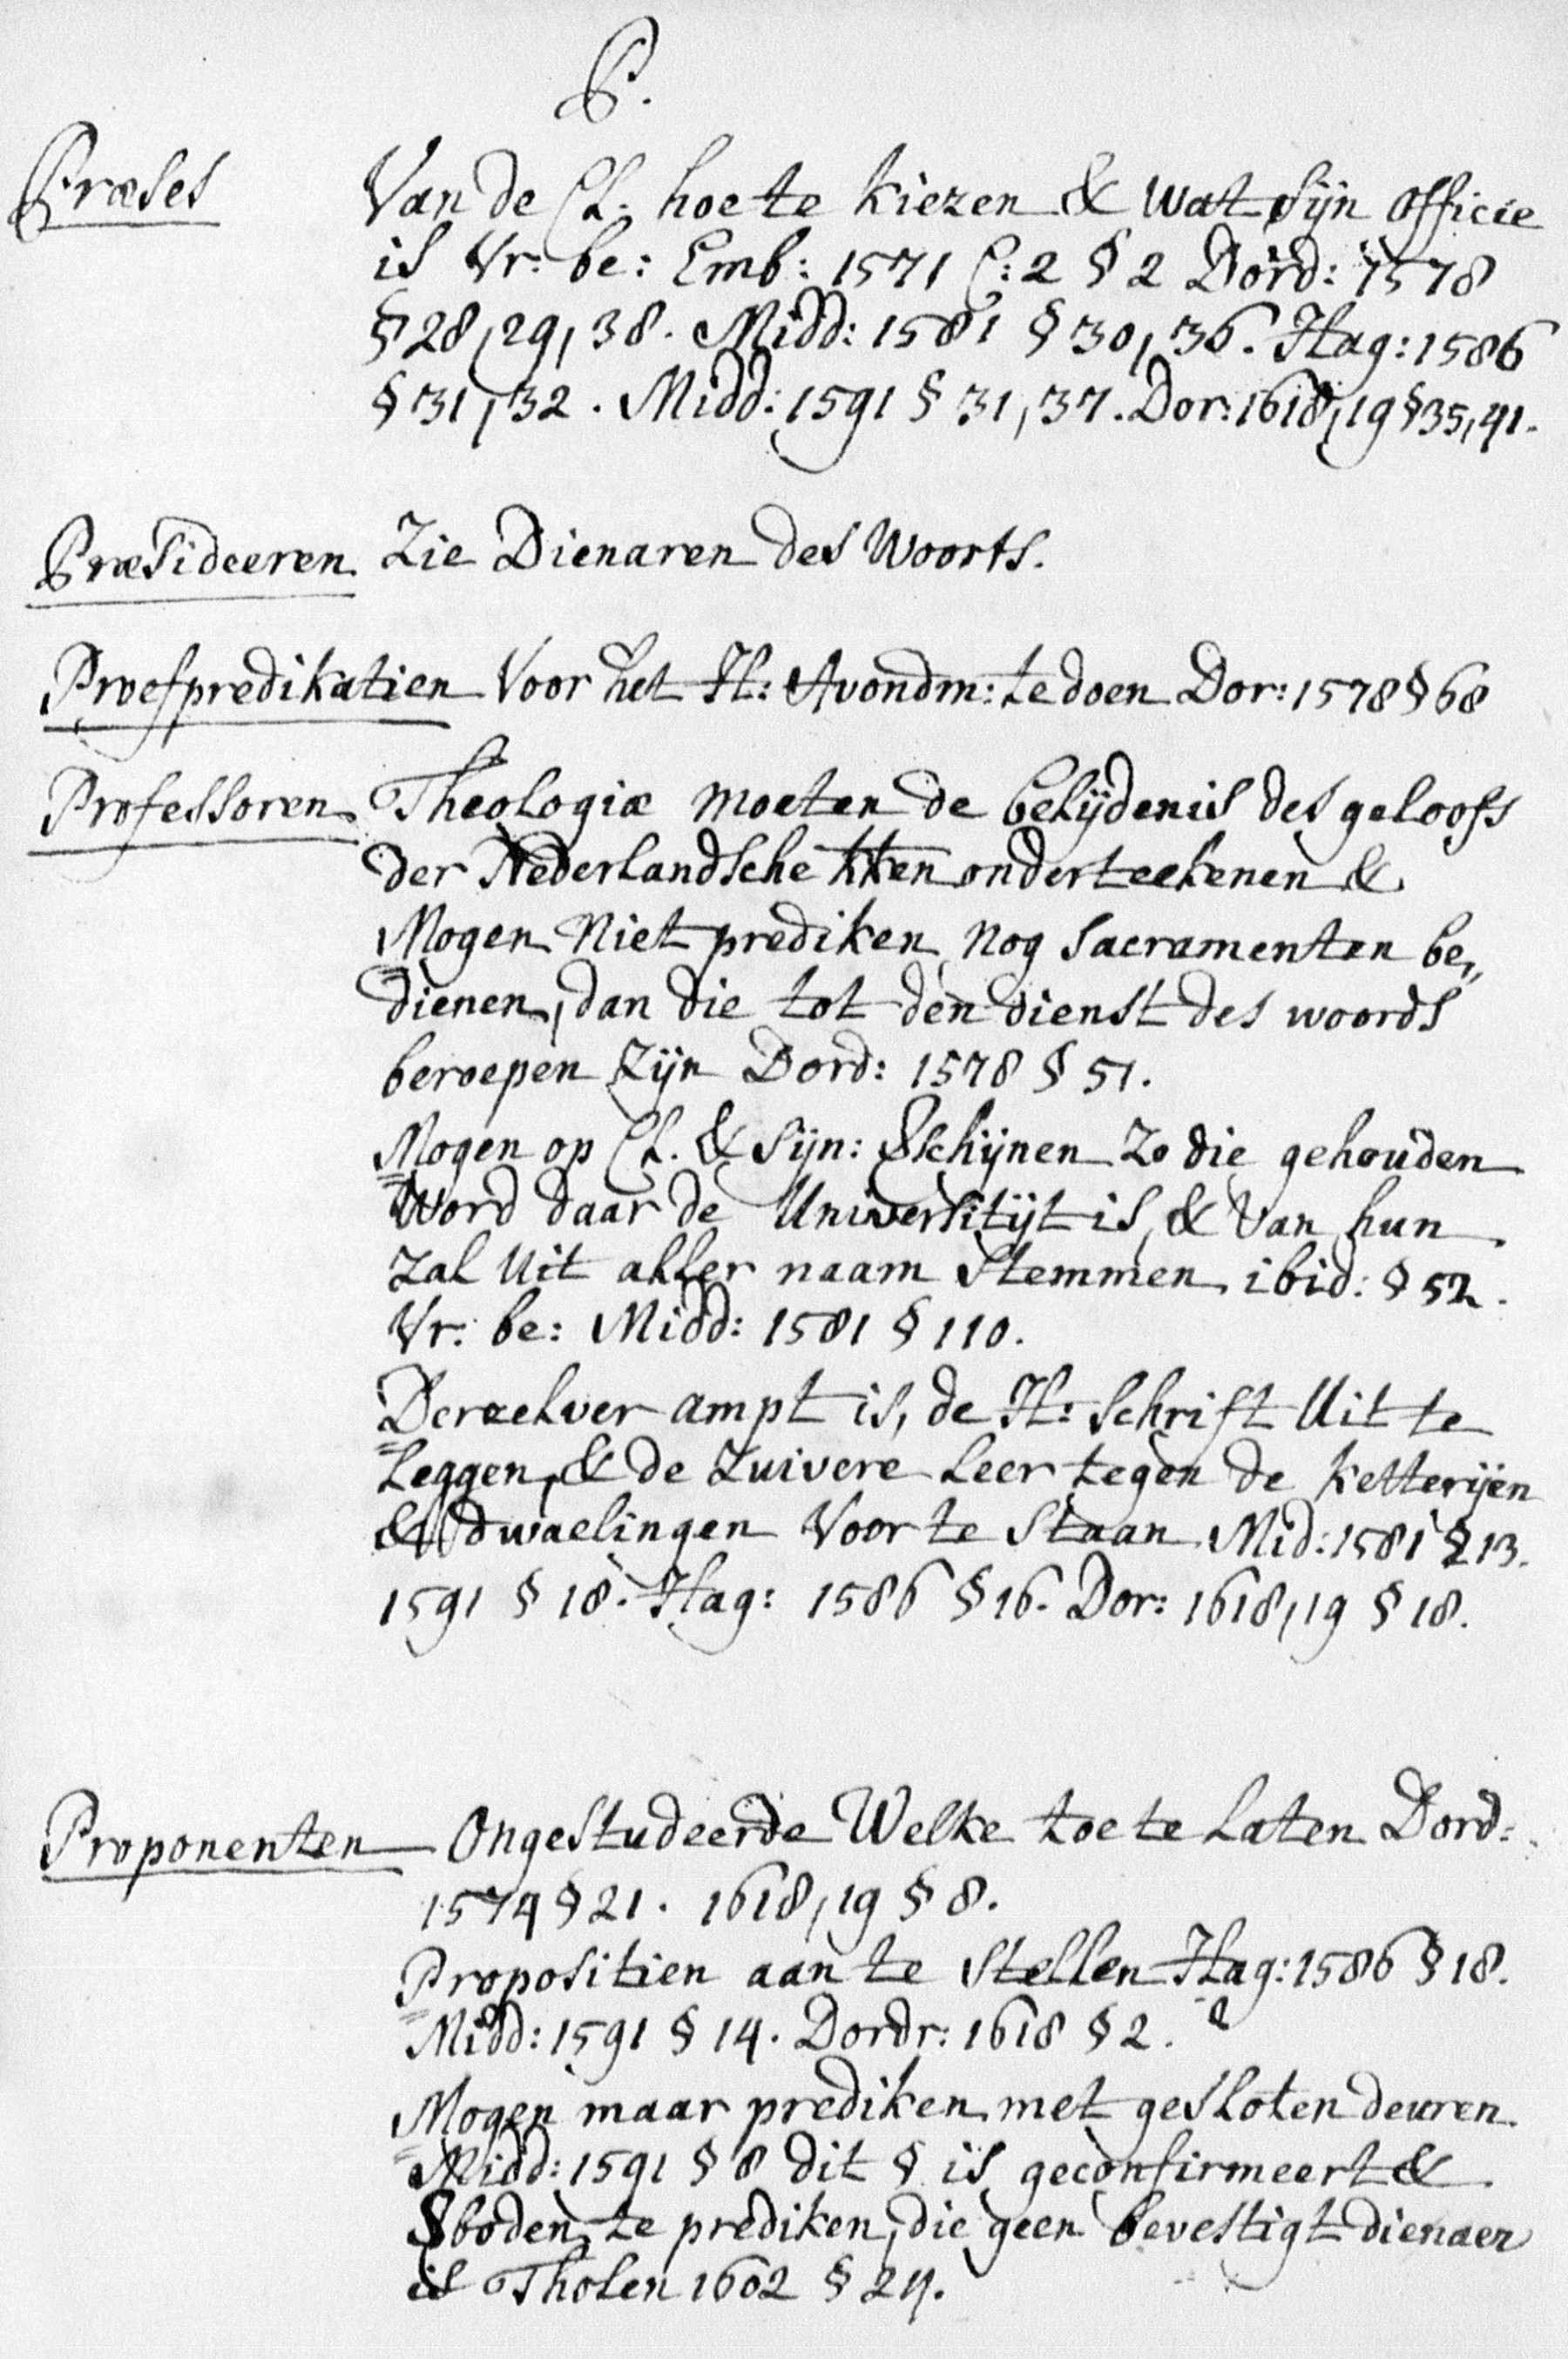 P.
Præses Van de Cl: hoe te kiezen & wat sijn officie
is Vr: be: Emb: 1571 C: 2 § 2 Dord: 1578
§ 28, 29, 38. Midd: 1581 § 30, 36. Hag: 1586
§ 31, 32. Midd: 1591 § 31, 37. Dor: 1618, 19 § 35, 41.
Præsideeren Zie Dienaren des Woorts.
Proefpredikatien Voor het H: Avondm: te doen Dor: 1578 § 68
Professoren Theologiæ moeten de belijdenis des geloofs
der Nederlandsche kken onderteekenen &
Mogen Niet prediken nog sacramenten be„
dienen, dan die tot den dienst des woords
beroepen zijn Dord: 1578 § 51.
Mogen op Cl. & sijn: Schijnen zo die gehouden
Word daar de Universitijt is, & Van hun
zal Uit aller naam stemmen ibid: § 52.
Vr: be: Midd: 1581 § 110.
Derzelver ampt is, de H: schrift Uit te
Leggen, & de zuivere Leer tegen de ketterijen
& dwaelingen Voor te staan Mid: 1581 § 13.
1591 § 18. Hag: 1586 § 16. Dor: 1618, 19 § 18.
Proponenten Ongestudeerde Welke toe te laten Dord:
1574 § 21. 1618, 19 § 8.
Propositien aan te stellen Hag: 1586 § 18.
Midd: 1591 § 14. Dordr: 1618 § 2.
Mogen maar prediken met gesloten deuren.
Midd: 1591 § 8 dit § is geconfirmeert &
§boden te prediken, die geen bevestigt dienaer
is Tholen 1602 § 24.